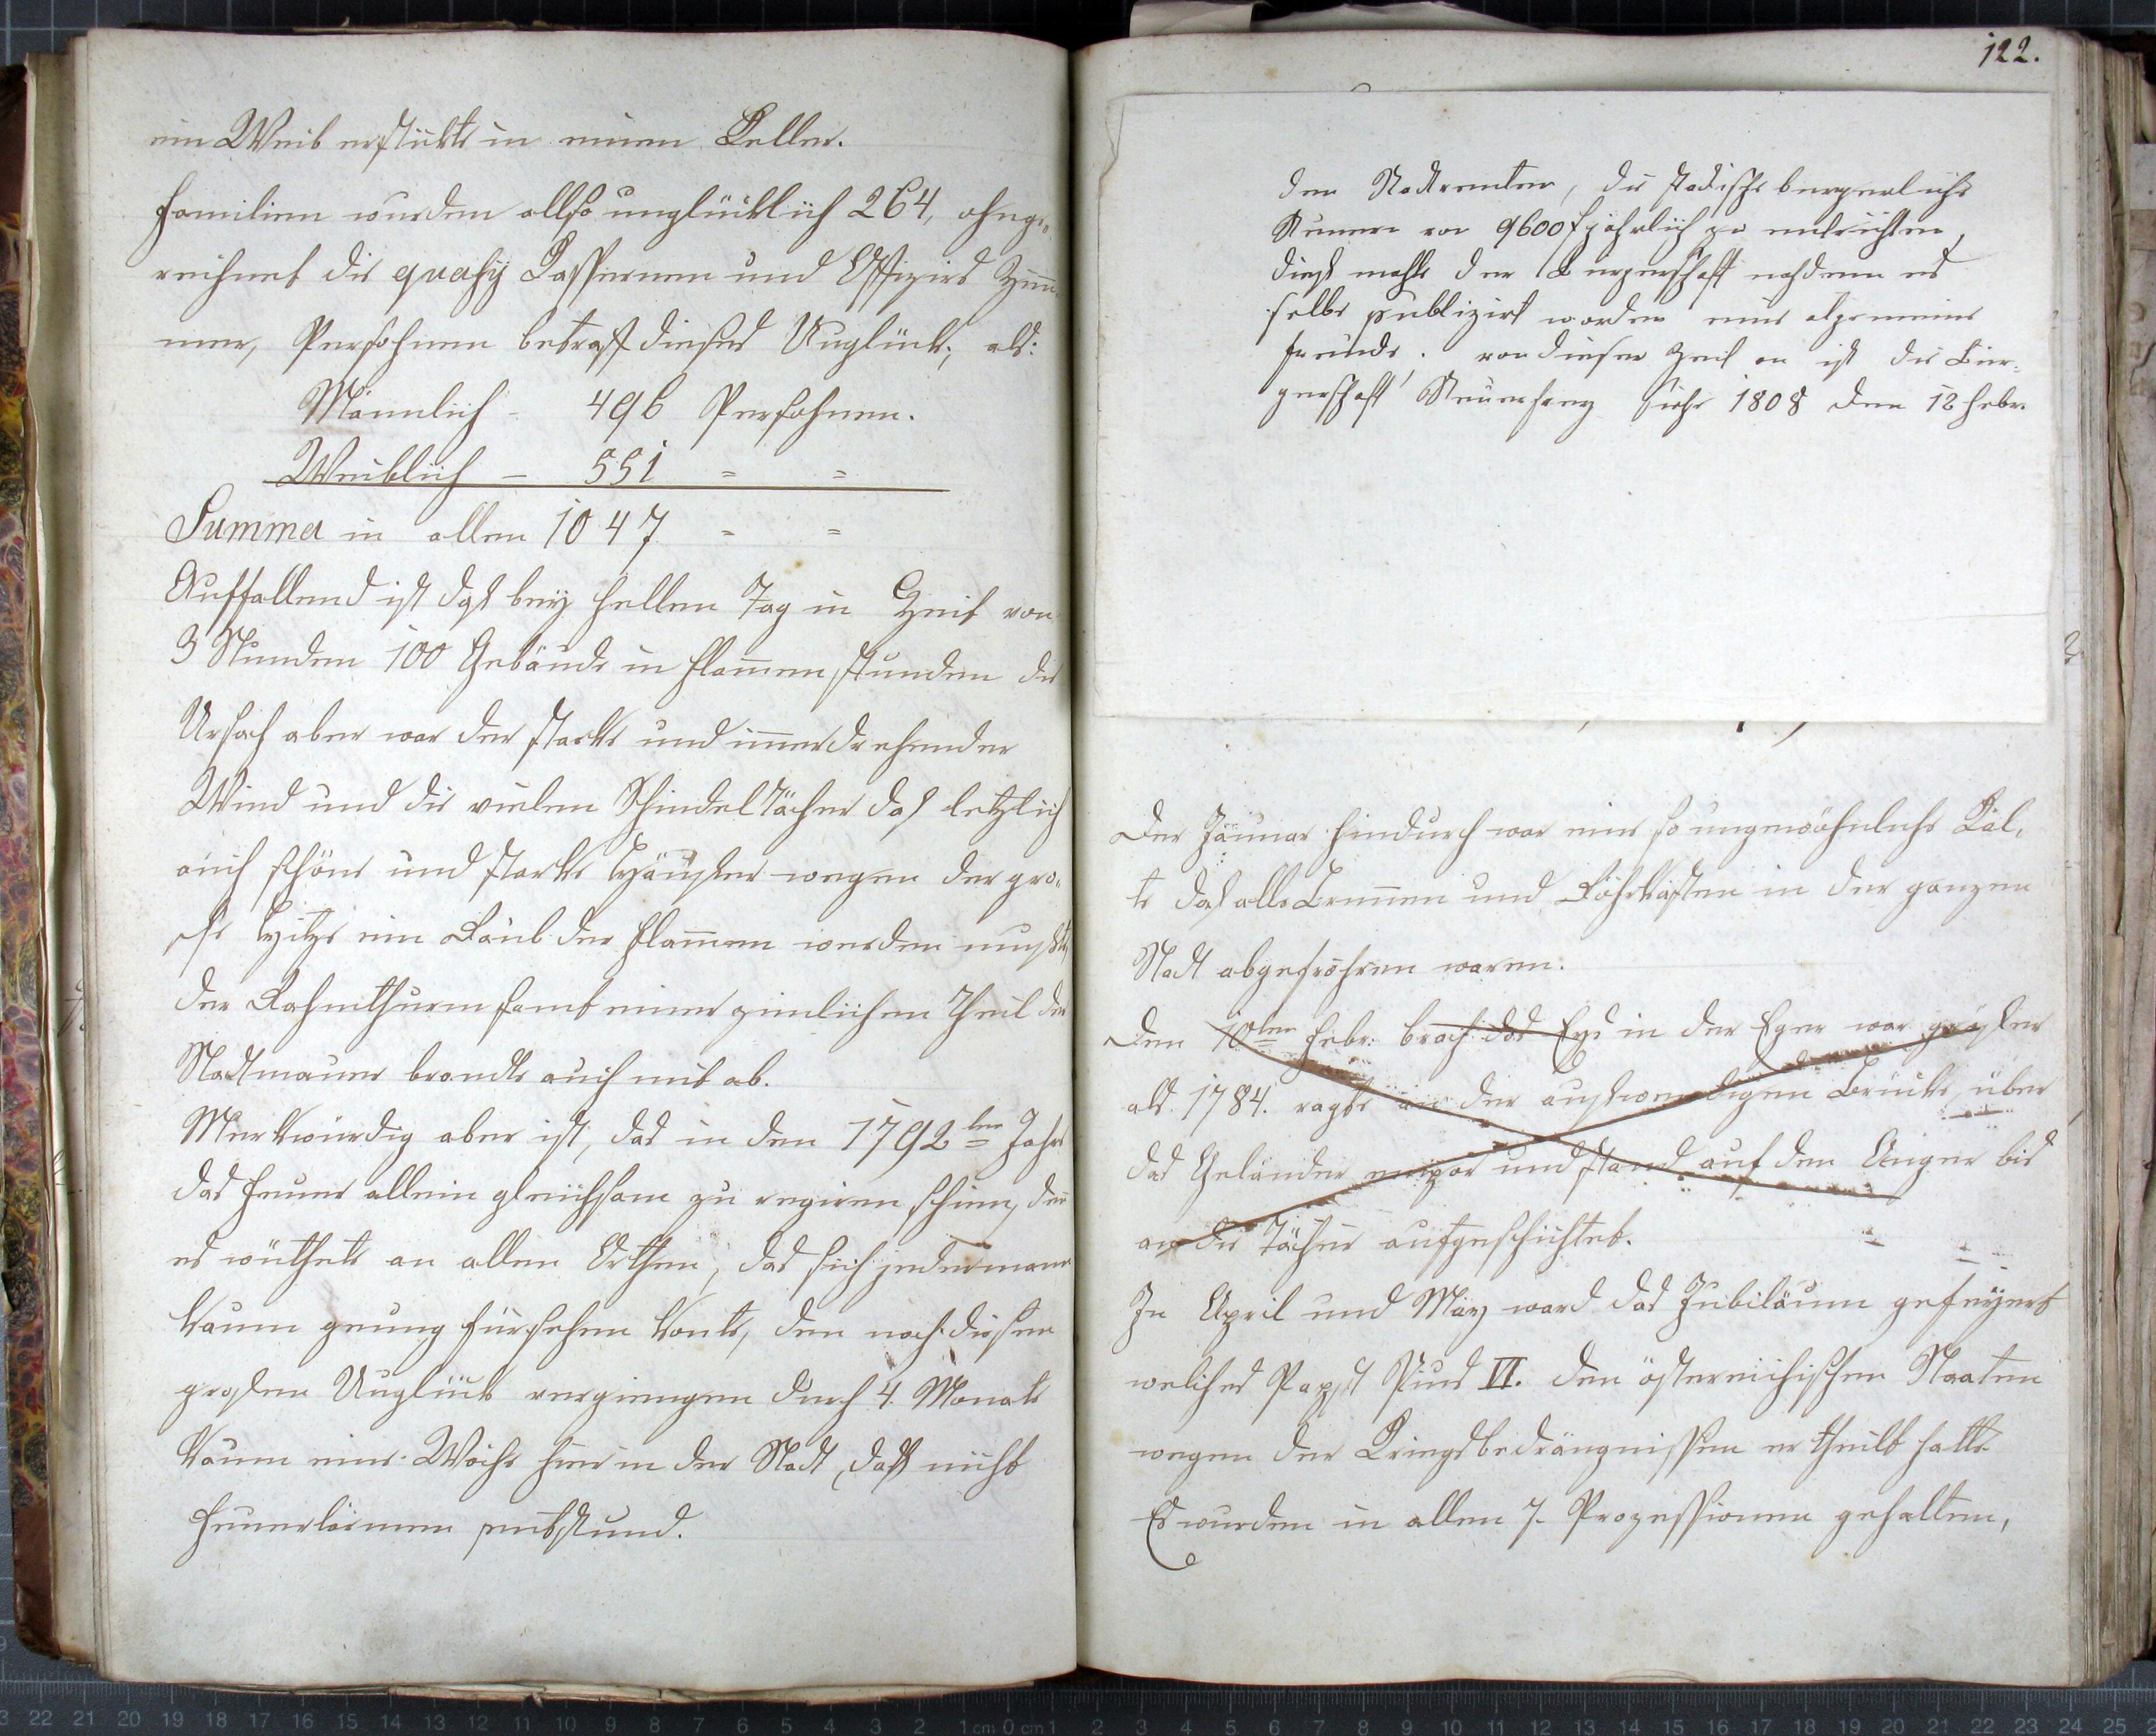 ein Weib erstickte in einem Keller.
Familien wurden allso unglücklich 264, ohnge„
rechnet die quasy Cassernen und Offizirs Zim̅
mer, Persohnen betraff dieses Unglück, als:
Mānnlich - 496 Persohnen.
Weiblich - 551 = =
Summa in allen 1047 = =
Auffallend ist daß bey hellen Tag in Zeit von
3 Stunden 100 Gebäude in Flam̅en stunden die
Ursach aber war der starke und im̅erdrehender
Wind und die vielen Schindeltächer daß letzlich
auch schöne und starke Häuser wegen der gro„
ße Hitze ein Raub der Flam̅en werden mußte,
der Rahmthurm samt einer zimlichen Theil der
Stadtmauer brandte auch mit ab.
Merkwürdig aber ist, das in den 1792ten Jahr
das Feuer allein gleichsam zu regiren schien, den̅
es wüthete an allen Orthen, das sich jedermann
kaum genug fürsehen konte, den nach diesen
großen Unglück vergiengen durch 4. Monate
kaum eine Woche hier in der Stadt, daß nicht
Feuerlärmen entstund.
122.
den Stadtrenten, die städische burgerliche
Steuern von 9600 f jährlich zu entrichten,
dieß machte der Burgerschaft nachdem es
selbe publizirt worden eine algemeine
Freude. von dieser Zeit an ist die Bür-
gerschaft Steuerfrey siehe 1808 den 12 Febr.
Der Jänner hindurch war eine so ungewöhnliche Käl„
te daß alle Brun̅en und Röhrkästen in der ganzen
Stadt abgefröhren waren.
Den 10ten Febr: brach das Eys in der Eger war größer
als 1784. ragte an der auswendigen Brücke, über
das Geländer empor und stand auf den Anger bis
an die Tächer aufgeschichtet.
In April und May ward das Jubiläum gefeyert
welches Papst Pius VI. den östereichischen Staaten
wegen der Kriegsbedrängnissen ertheilt hatte
Es wurden in allen 7. Prozessionen gehalten,